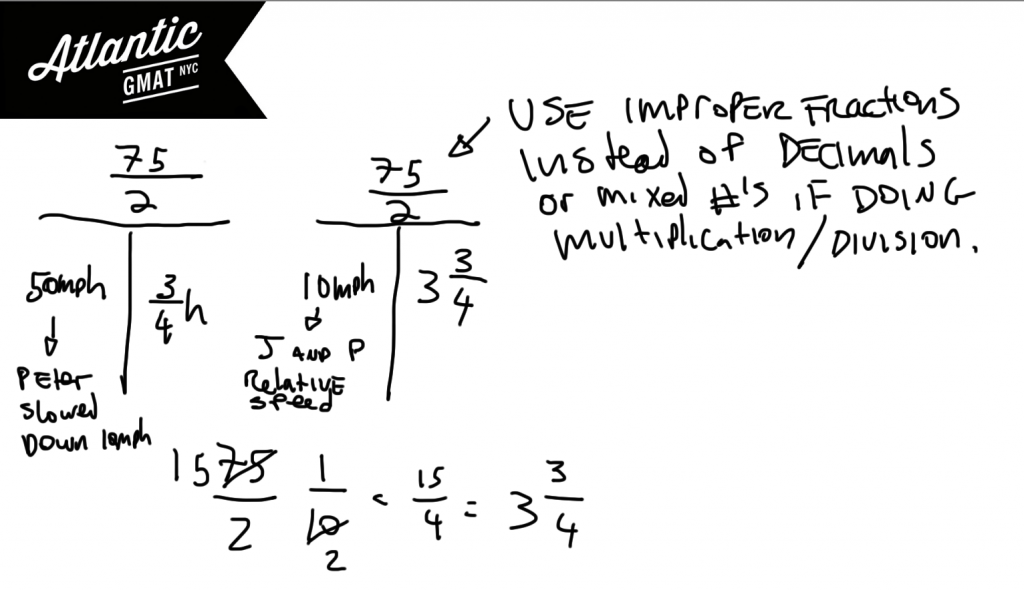 Atlantic
GMAT NYC
USE IMPROPER FRACTIONS
INSTEAD OF DECIMALS
OR MIXED #'S IF DOING
MULTIPLICATION/DIVISION.
75
2
50mph
3
4
h
PETER
SLOWED
DOWN 10mph
75
2
10mph
3 3
4
J AND P
RELATIVE
SPEED
15 75 1 < 15 = 3 3
2 10 4 4
2